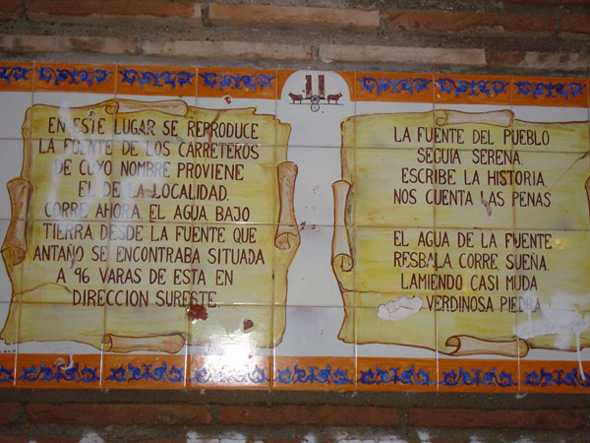 11
EN ESTE LUGAR SE REPRODUCE
LA FUENTE DE LOS CARRETEROS
DE CUYO NOMBRE PROVIENE
EL DE LA LOCALIDAD.
CORRE AHORA EL AGUA BAJO
TIERRA DESDE LA FUENTE QUE
ANTAÑO SE ENCONTRABA SITUADA
A 96 VARAS DE ESTA EN
DIRECCION SURESTE.
LA FUENTE DEL PUEBLO
SEGUIA SERENA.
ESCRIBE LA HISTORIA,
NOS CUENTA LAS PENAS
EL AGUA DE LA FUENTE
RESBALA CORRE SUEÑA.
LAMIENDO CASI MUDA
VERDINOSA PIEDRA